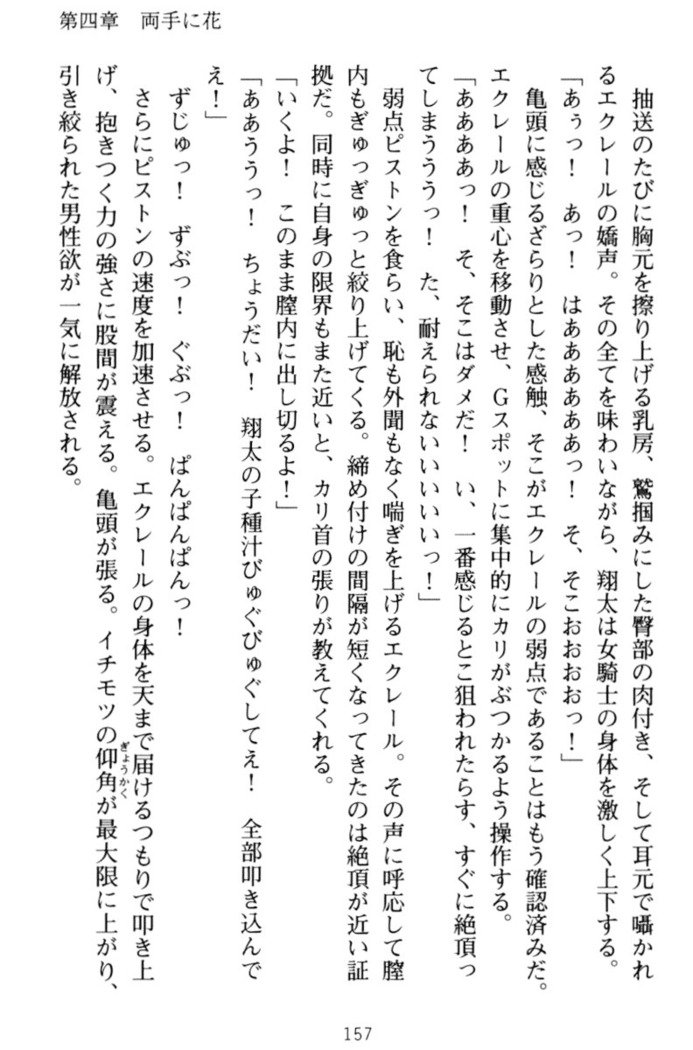 第四章　両手に花
　抽送のたびに胸元を擦り上げる乳房、鷲掴みにした臀部の肉付き、そして耳元で囁かれ
るエクレールの嬌声。その全てを味わいながら、翔太は女騎士の身体を激しく上下する。
「あぅっ！　あっ！　はああああああっ！　そ、そこおおおおっ！」
　亀頭に感じるざらりとした感触、そこがエクレールの弱点であることはもう確認済みだ。
エクレールの重心を移動させ、Gスポットに集中的にカリがぶつかるよう操作する。
「ああああっ！　そ、そこはダメだ！　い、一番感じるとこ狙われたらす、すぐに絶頂っ
てしまうううっ！　た、耐えられないいいいいっ！」
　弱点ピストンを食らい、恥も外聞もなく喘ぎを上げるエクレール。その声に呼応して膣
内もぎゅっぎゅっと絞り上げてくる。締め付けの間隔が短くなってきたのは絶頂が近い証
拠だ。同時に自身の限界もまた近いと、カリ首の張りが教えてくれる。
「いくよ！　このまま膣内に出し切るよ！」
「ああううっ！　ちょうだい！　翔太の子種汁びゅぐびゅぐしてえ！　全部叩き込んで
え！」
　ずじゅっ！　ずぶっ！　ぐぶっ！　ぱんぱんぱんっ！
　さらにピストンの速度を加速させる。エクレールの身体を天まで届けるつもりで叩き上
げ、抱きつく力の強さに股間が震える。亀頭が張る。イチモツの仰角が最大限に上がり、
ぎょうかく
引き絞られた男性欲が一気に解放される。
157